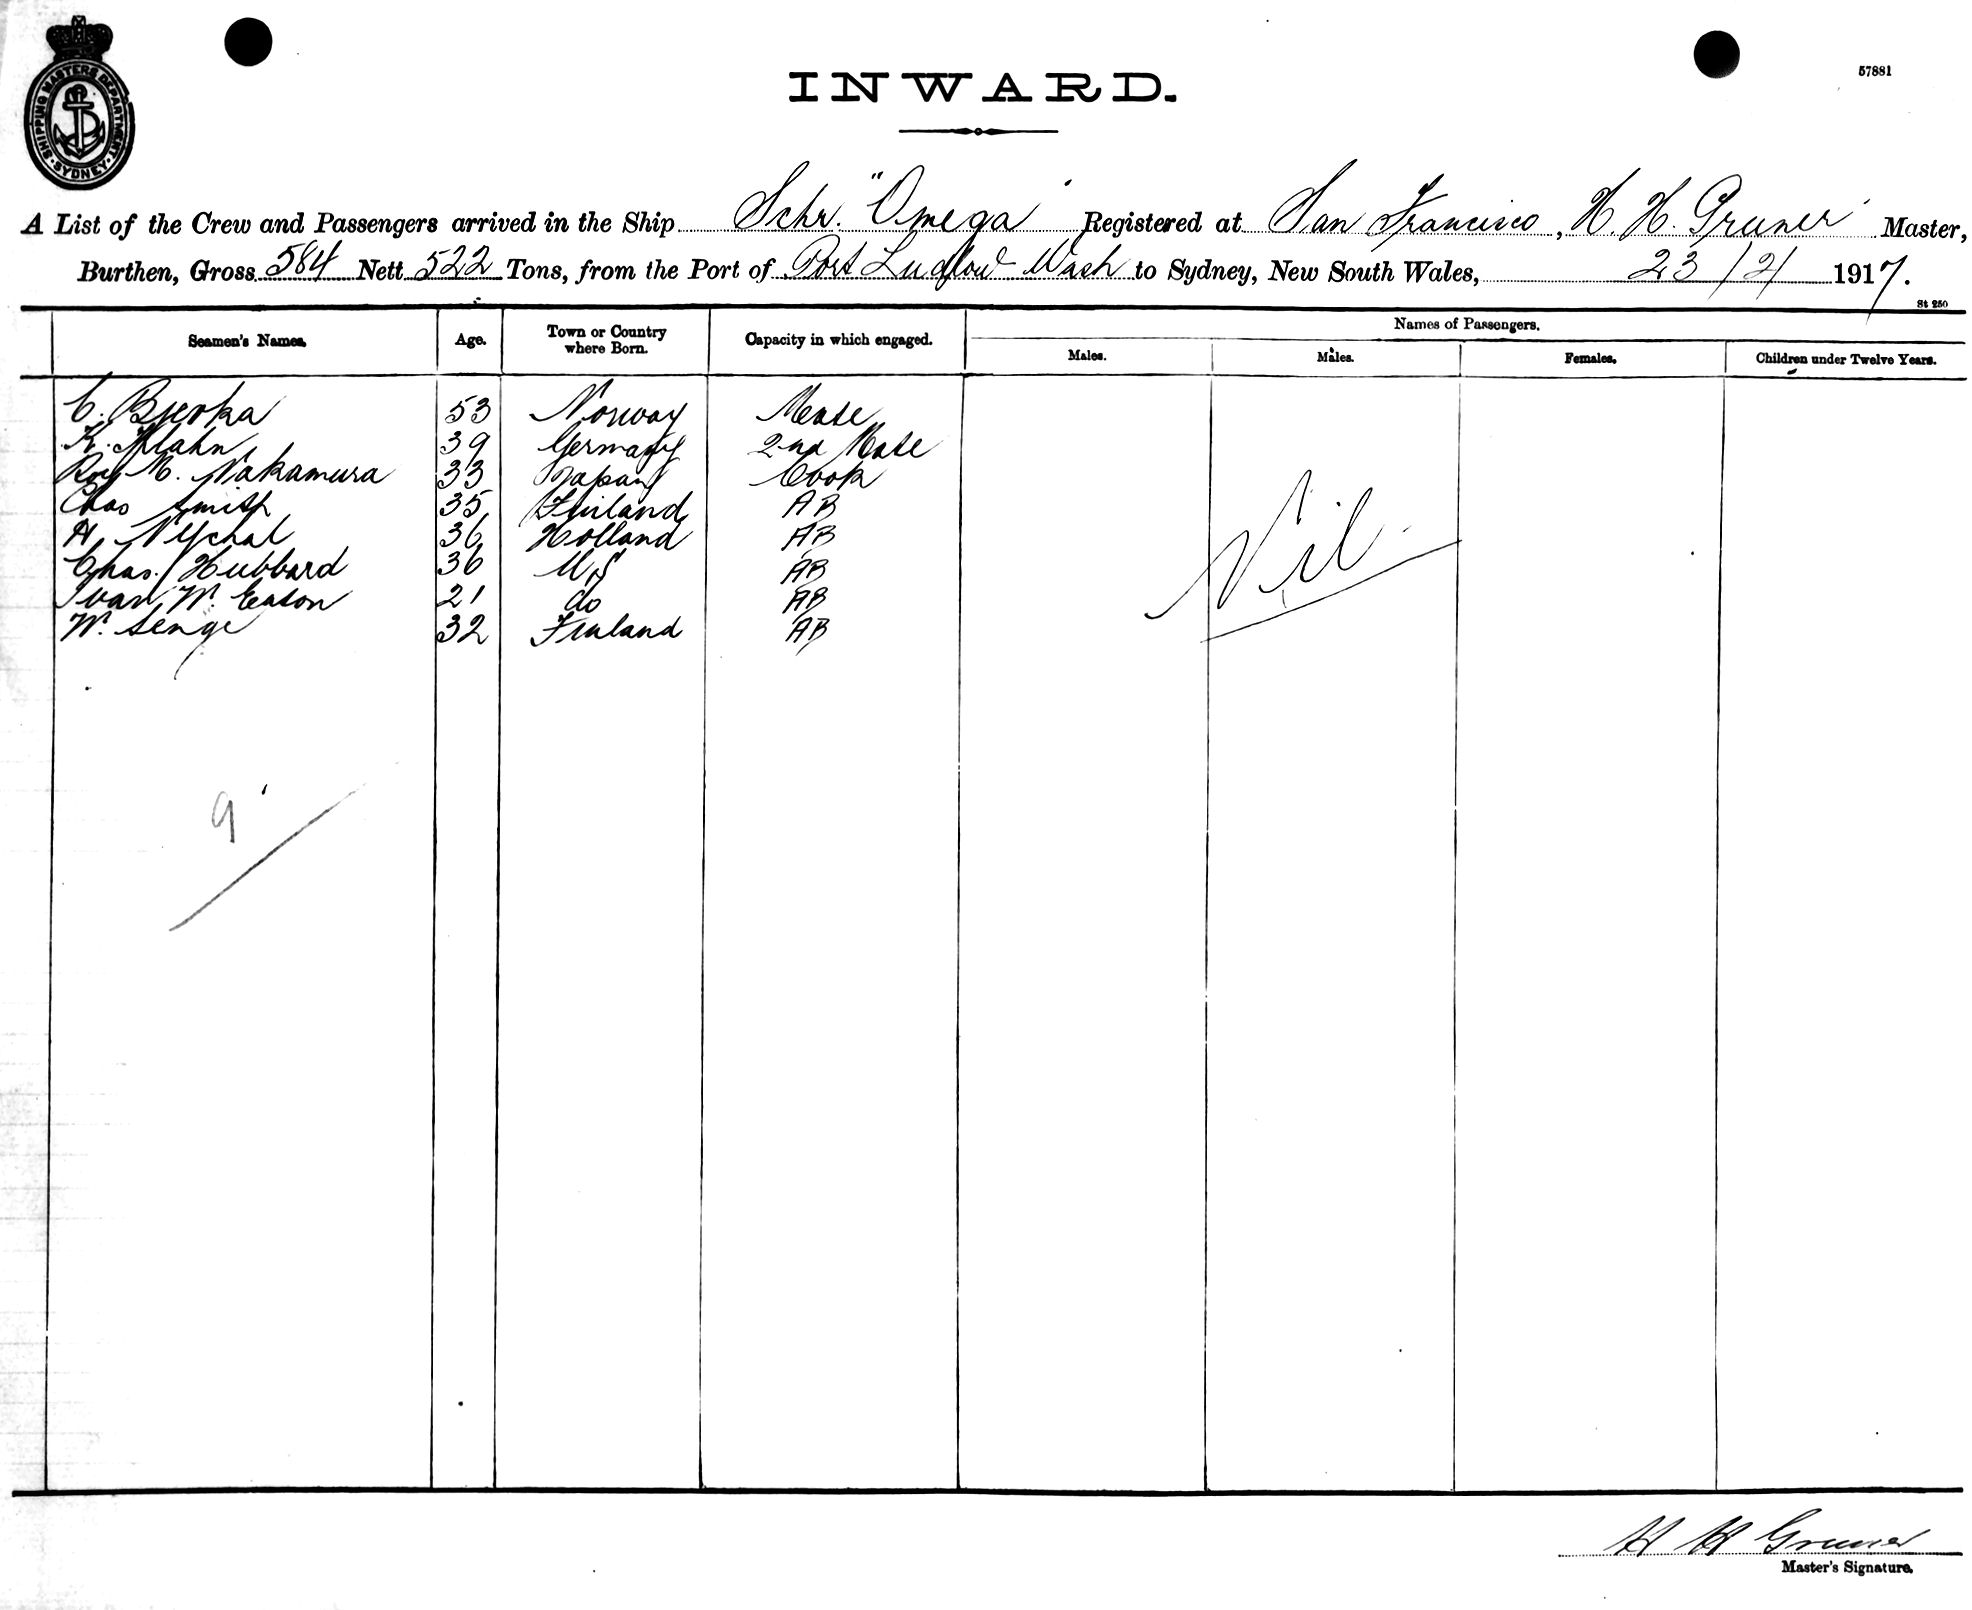 SHIPPING MASTERS DEPARTMENT · SYDNEY ·
57881
INWARD.
A List of the Crew and Passengers arrived in the Ship Schr. "Omega" Registered at San Francisco, H. H. Gruner Master,
Burthen, Gross 584 Nett 522 Tons, from the Port of Port Ludlow Wash to Sydney, New South Wales, 23/2/ 1917.
St 250
Seamen's Names. Age. Town or Country where Born. Capacity in which engaged. Names of Passengers.
Males. Males. Females. Children under Twelve Years.
C. Bjerka 53 Norway Mate
K. Klahn 39 Germany 2nd Mate
Roy M. Nakamura 33 Japan Cook
Chas Smith 35 Finland AB
H 36 Holland AB
Chas. Hubbard 36 US AB
Ivan W. Eason 21 do AB
W. Senge 32 Finland AB
Nil.
9
H H Gruner
Master's Signature.